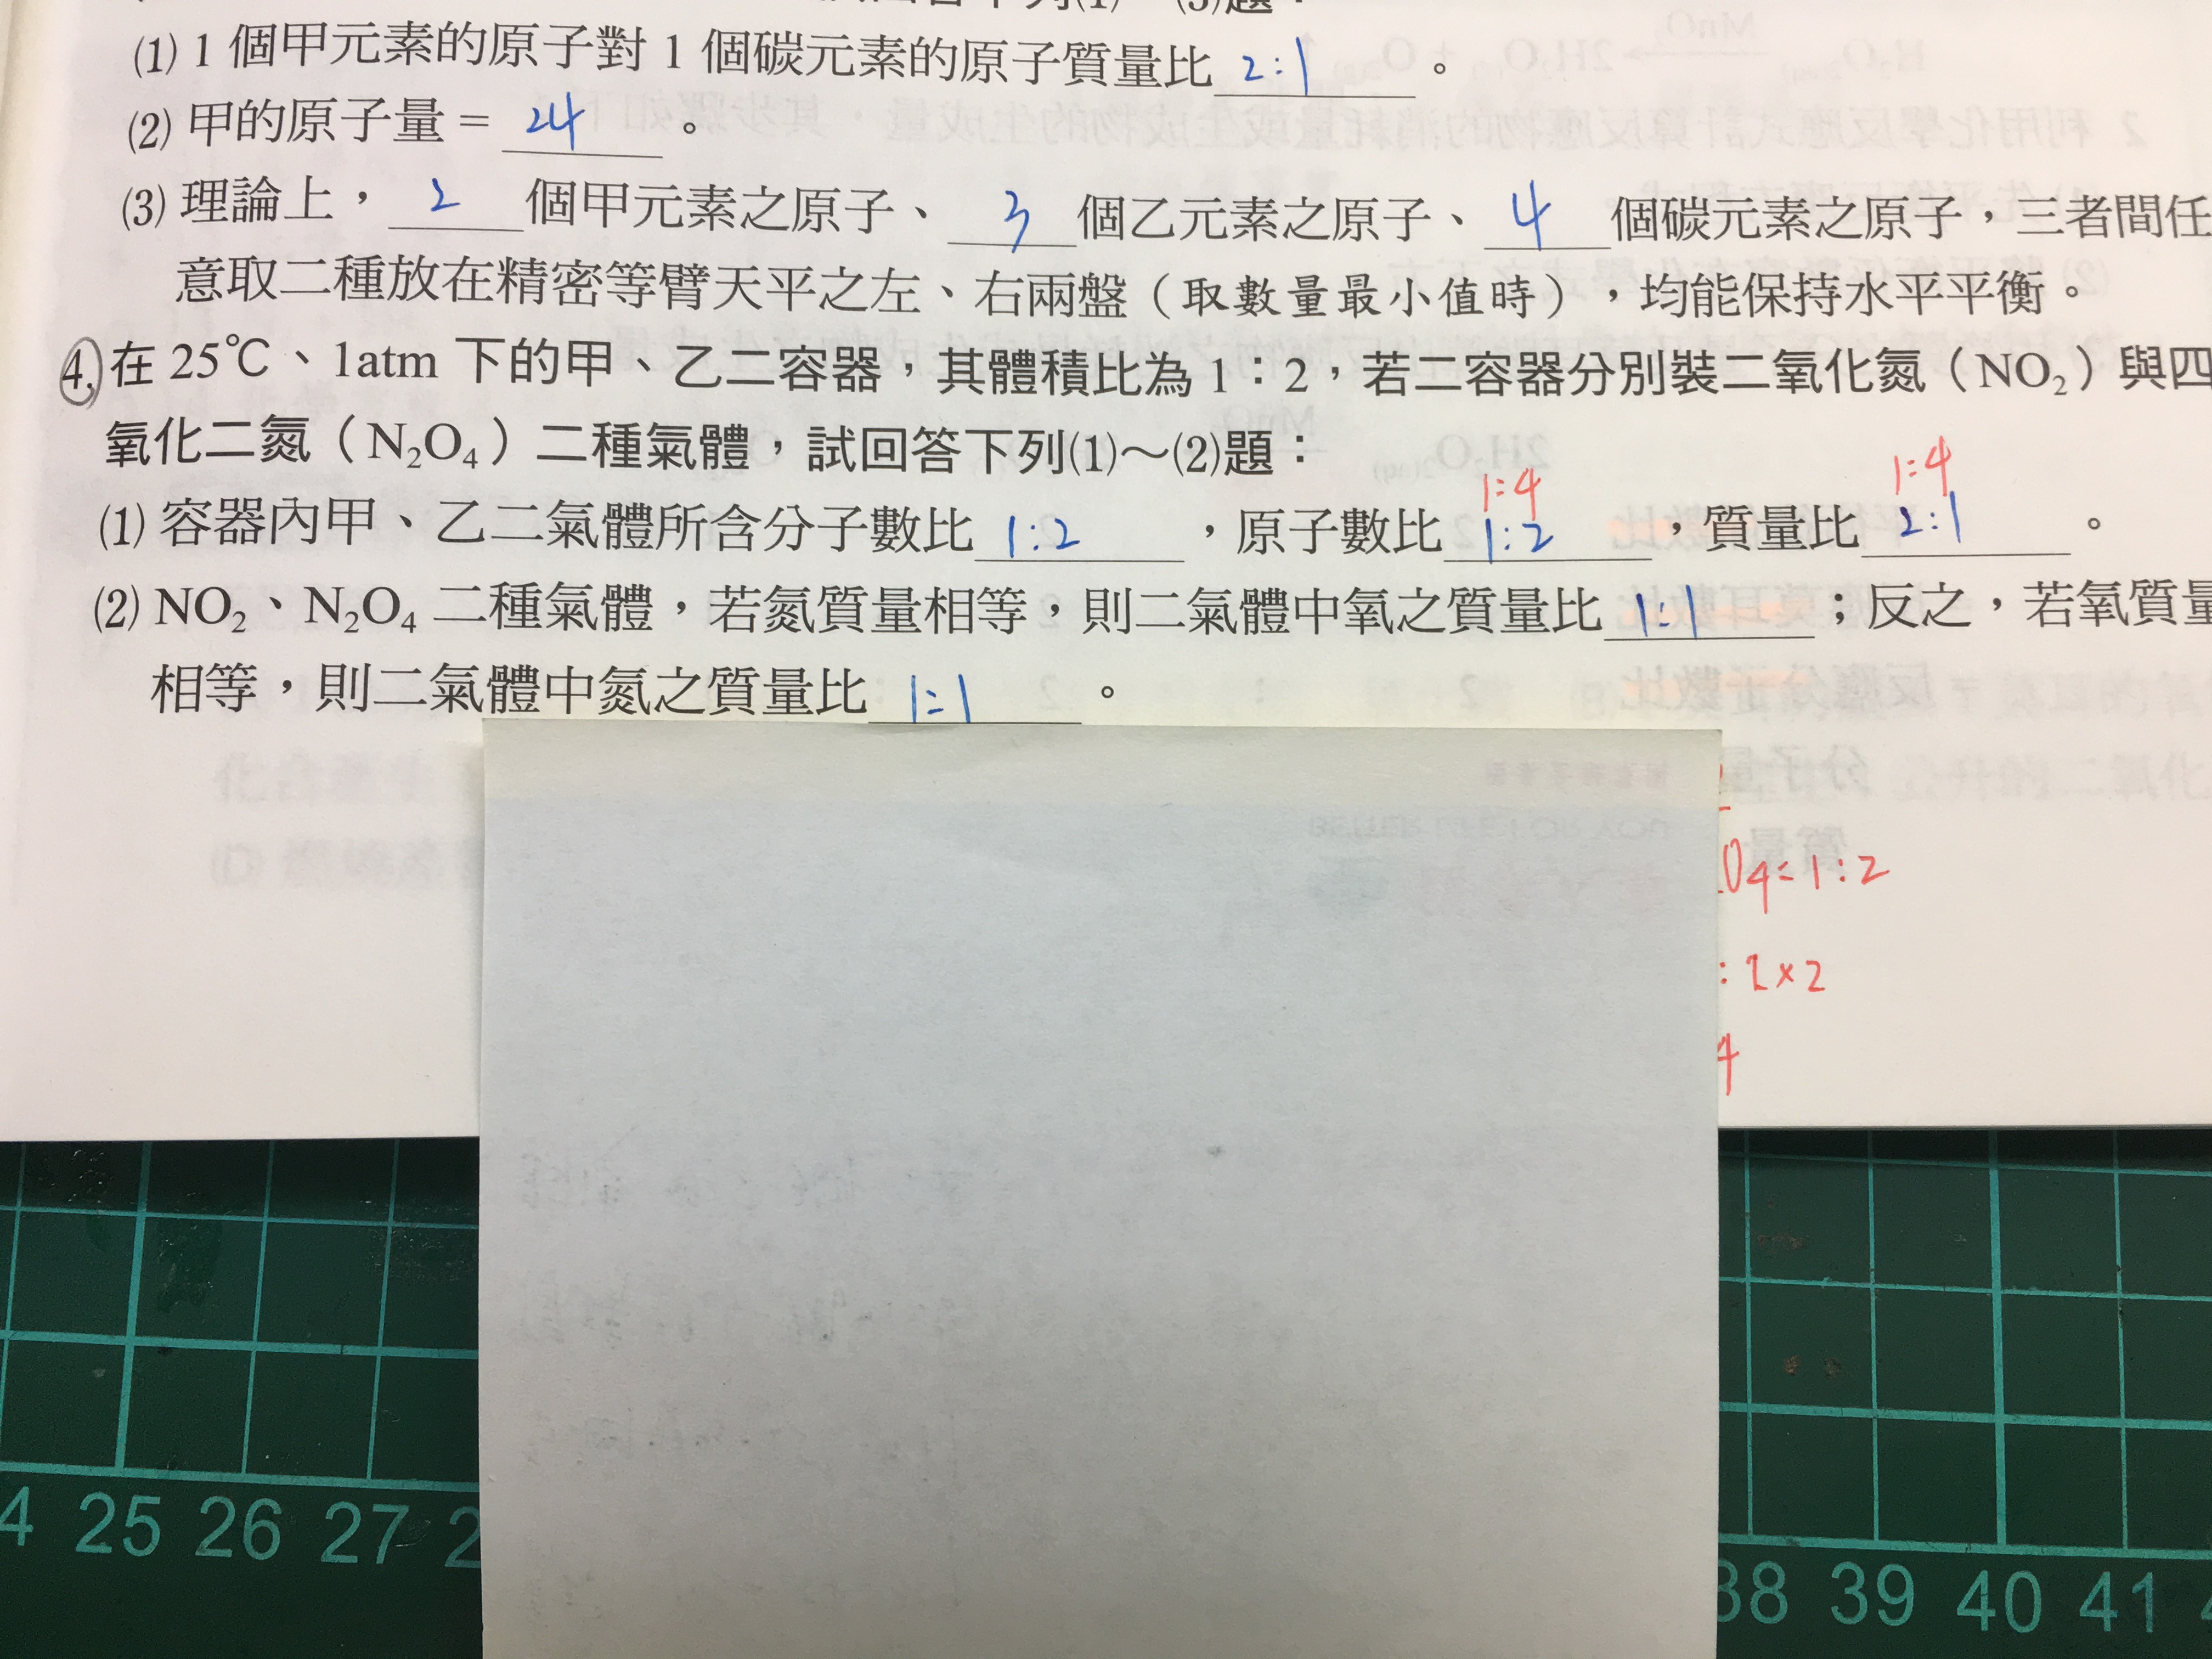 (1) 1 個甲元素的原子對 1 個碳元素的原子質量比 2:1 。
(2) 甲的原子量 = 24 。
(3) 理論上， 2 個甲元素之原子、 3 個乙元素之原子、 4 個碳元素之原子，三者間任
意取二種放在精密等臂天平之左、右兩盤（取數量最小值時），均能保持水平平衡。
4. 在 25℃、1atm 下的甲、乙二容器，其體積比為 1：2，若二容器分別裝二氧化氮（NO₂）與四
氧化二氮（N₂O₄）二種氣體，試回答下列(1)～(2)題：
1:4 1:4
(1) 容器內甲、乙二氣體所含分子數比 1:2 ，原子數比 1:2 ，質量比 2:1 。
(2) NO₂、N₂O₄ 二種氣體，若氮質量相等，則二氣體中氧之質量比 1:1 ；反之，若氧質量
相等，則二氣體中氮之質量比 1:1 。
O4=1:2
: 2×2
4
25 26 27 2
38 39 40 41